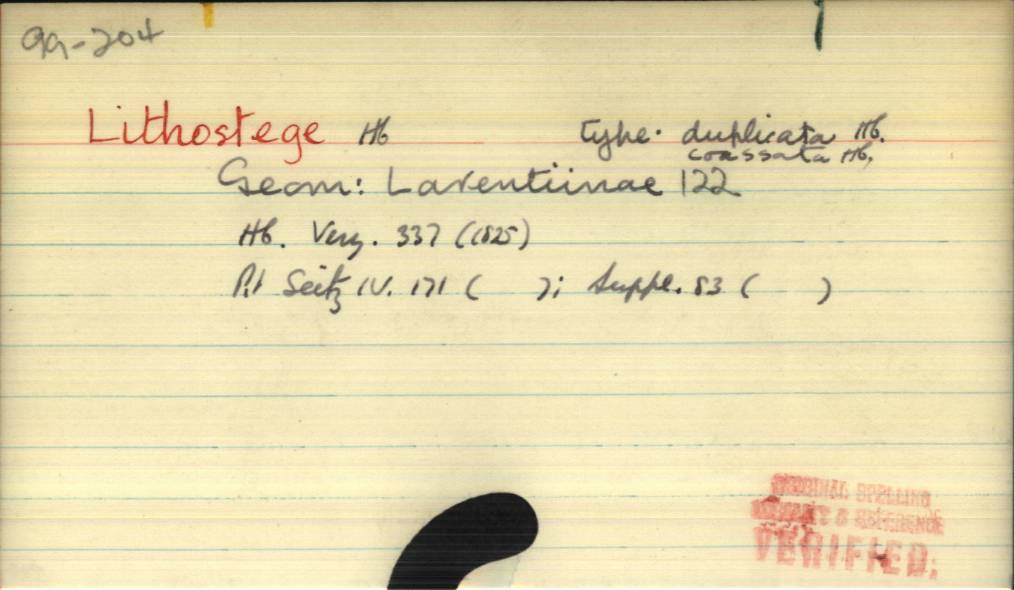 99-204
Lithostege Hb type. duplicata Hb.
coassata Hb,
Geom: Larentiinae 122
Hb. Verz. 337 (1825)
Pt Seitz IV. 171 ( ); Suppl. 83 ( )
ORIGINAL SPELLING
& REFERENCE
VERIFIED.